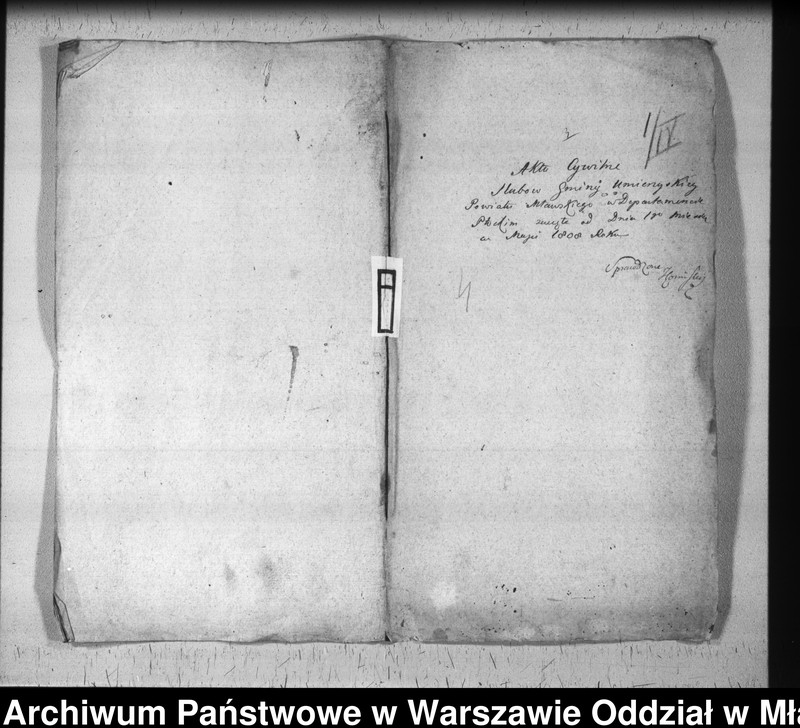 1/IV
Akta Cywilne
Slubow Gminÿ Umienyskiey
Powiatu Mławskiego w Departamencie
Płockim zaczęte od Dnia 1go
1808 Roku
Sprawdzone
Archiwum Państwowe w Warszawie Oddział w Mł